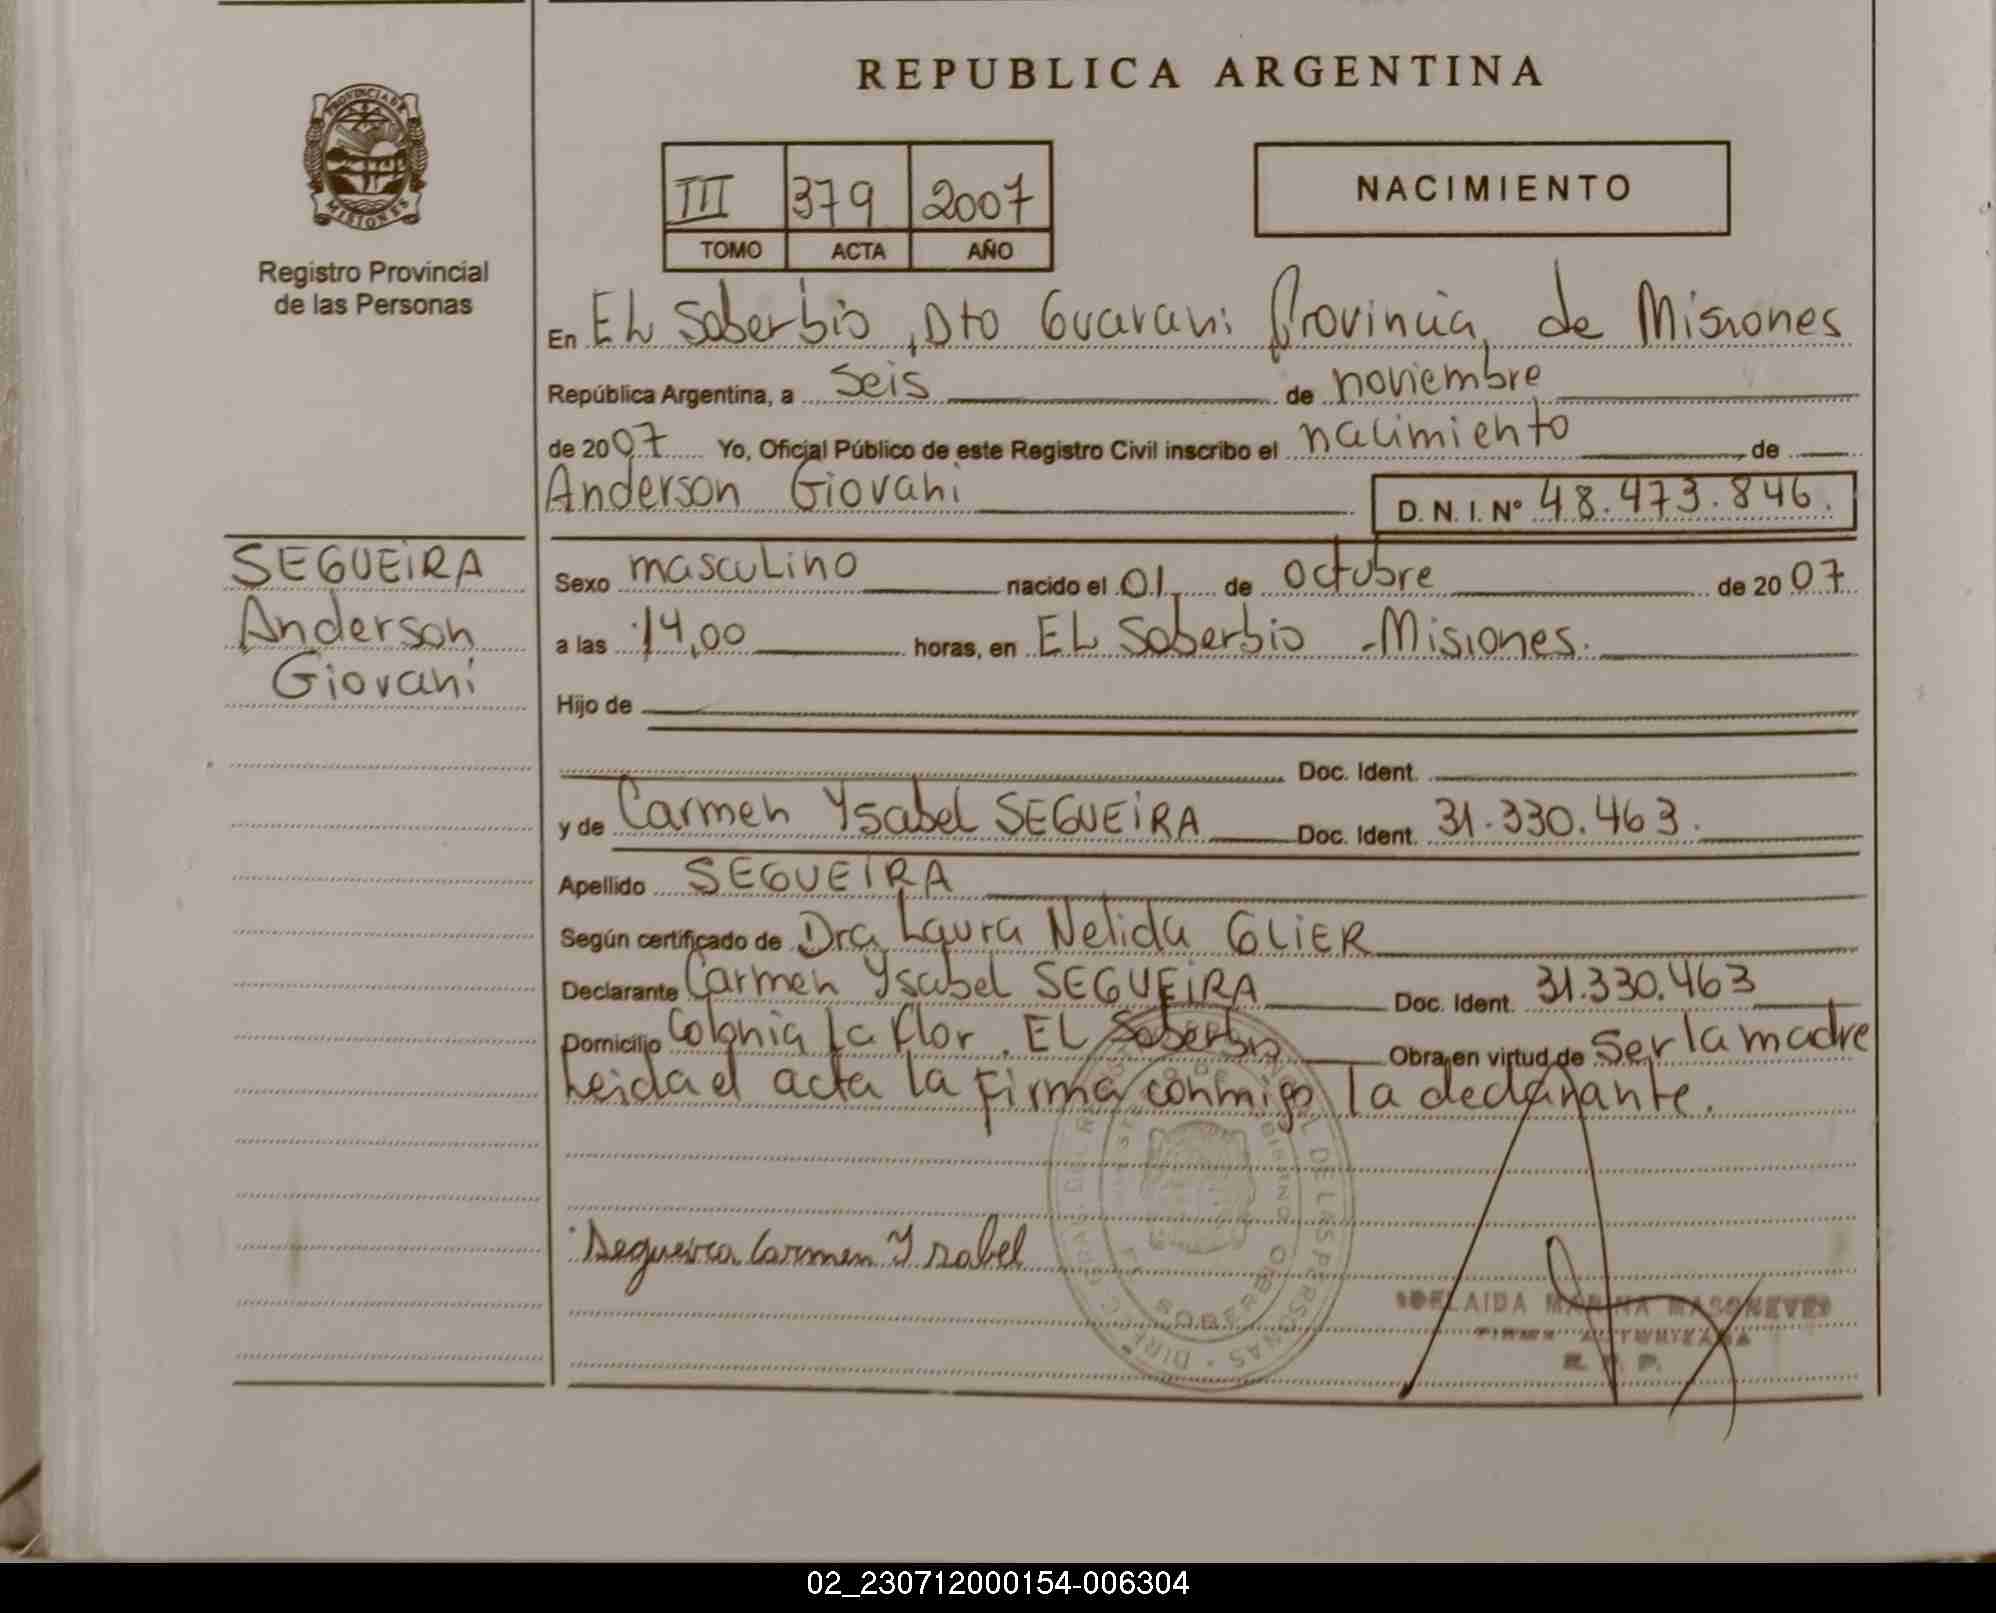 REPUBLICA ARGENTINA
PROVINCIA DE
MISIONES
Registro Provincial
de las Personas
III 379 2007
TOMO ACTA AÑO
NACIMIENTO
En EL Soberbio, Dto Guarani Provincia, de Misiones
República Argentina, a seis de noviembre
de 2007 Yo, Oficial Público de este Registro Civil inscribo el nacimiento de
Anderson Giovani D. N. I. Nº 48.473.846.
SEGUEIRA
Anderson
Giovani
Sexo masculino nacido el 01 de octubre de 2007
a las 14,00 horas, en EL Soberbio - Misiones.
Hijo de
Doc. Ident.
y de Carmen Ysabel SEGUEIRA Doc. Ident. 31.330.463.
Apellido SEGUEIRA
Según certificado de Dra Laura Nelida GLIER
Declarante Carmen Ysabel SEGUEIRA Doc. Ident. 31.330.463
Domicilio Colonia La Flor. EL Soberbio Obra en virtud de Ser la madre
Leida el acta la firma conmigo la declarante.
Segueira Carmen Ysabel
02_230712000154-006304